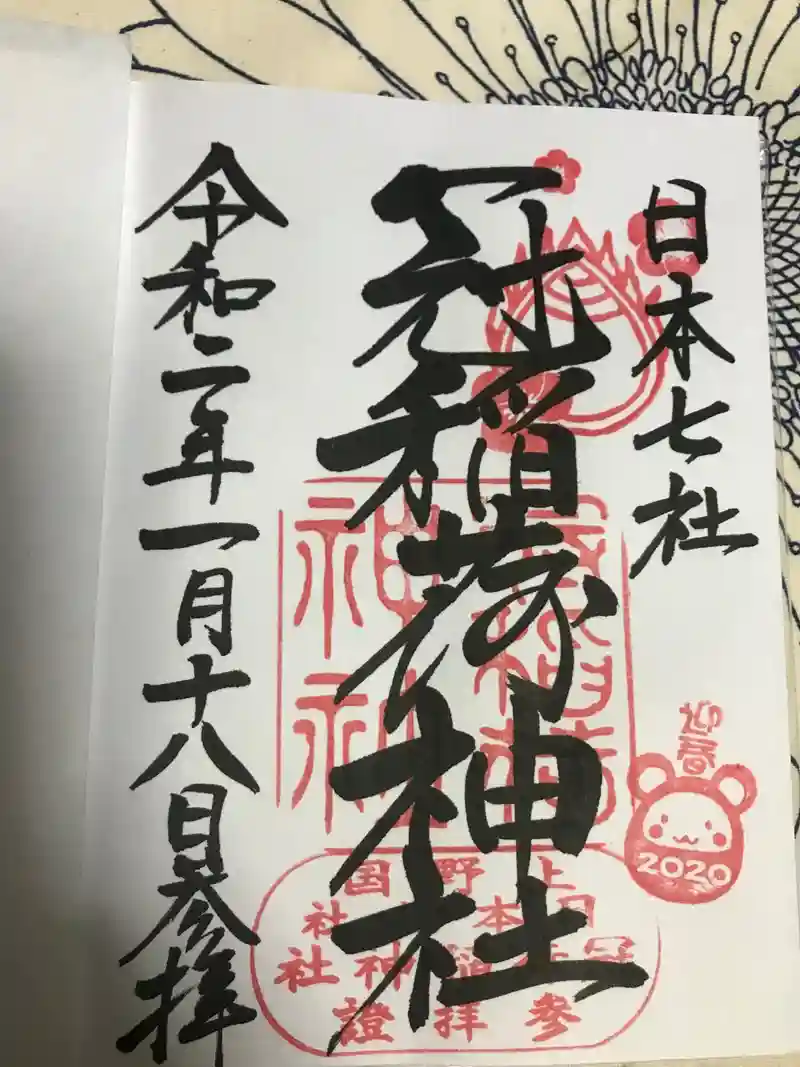 日本七社
冠稲荷神社
令和二年一月十八日参拝
迎春
2020
上野国
日本七社
冠稲荷神社
参拝證